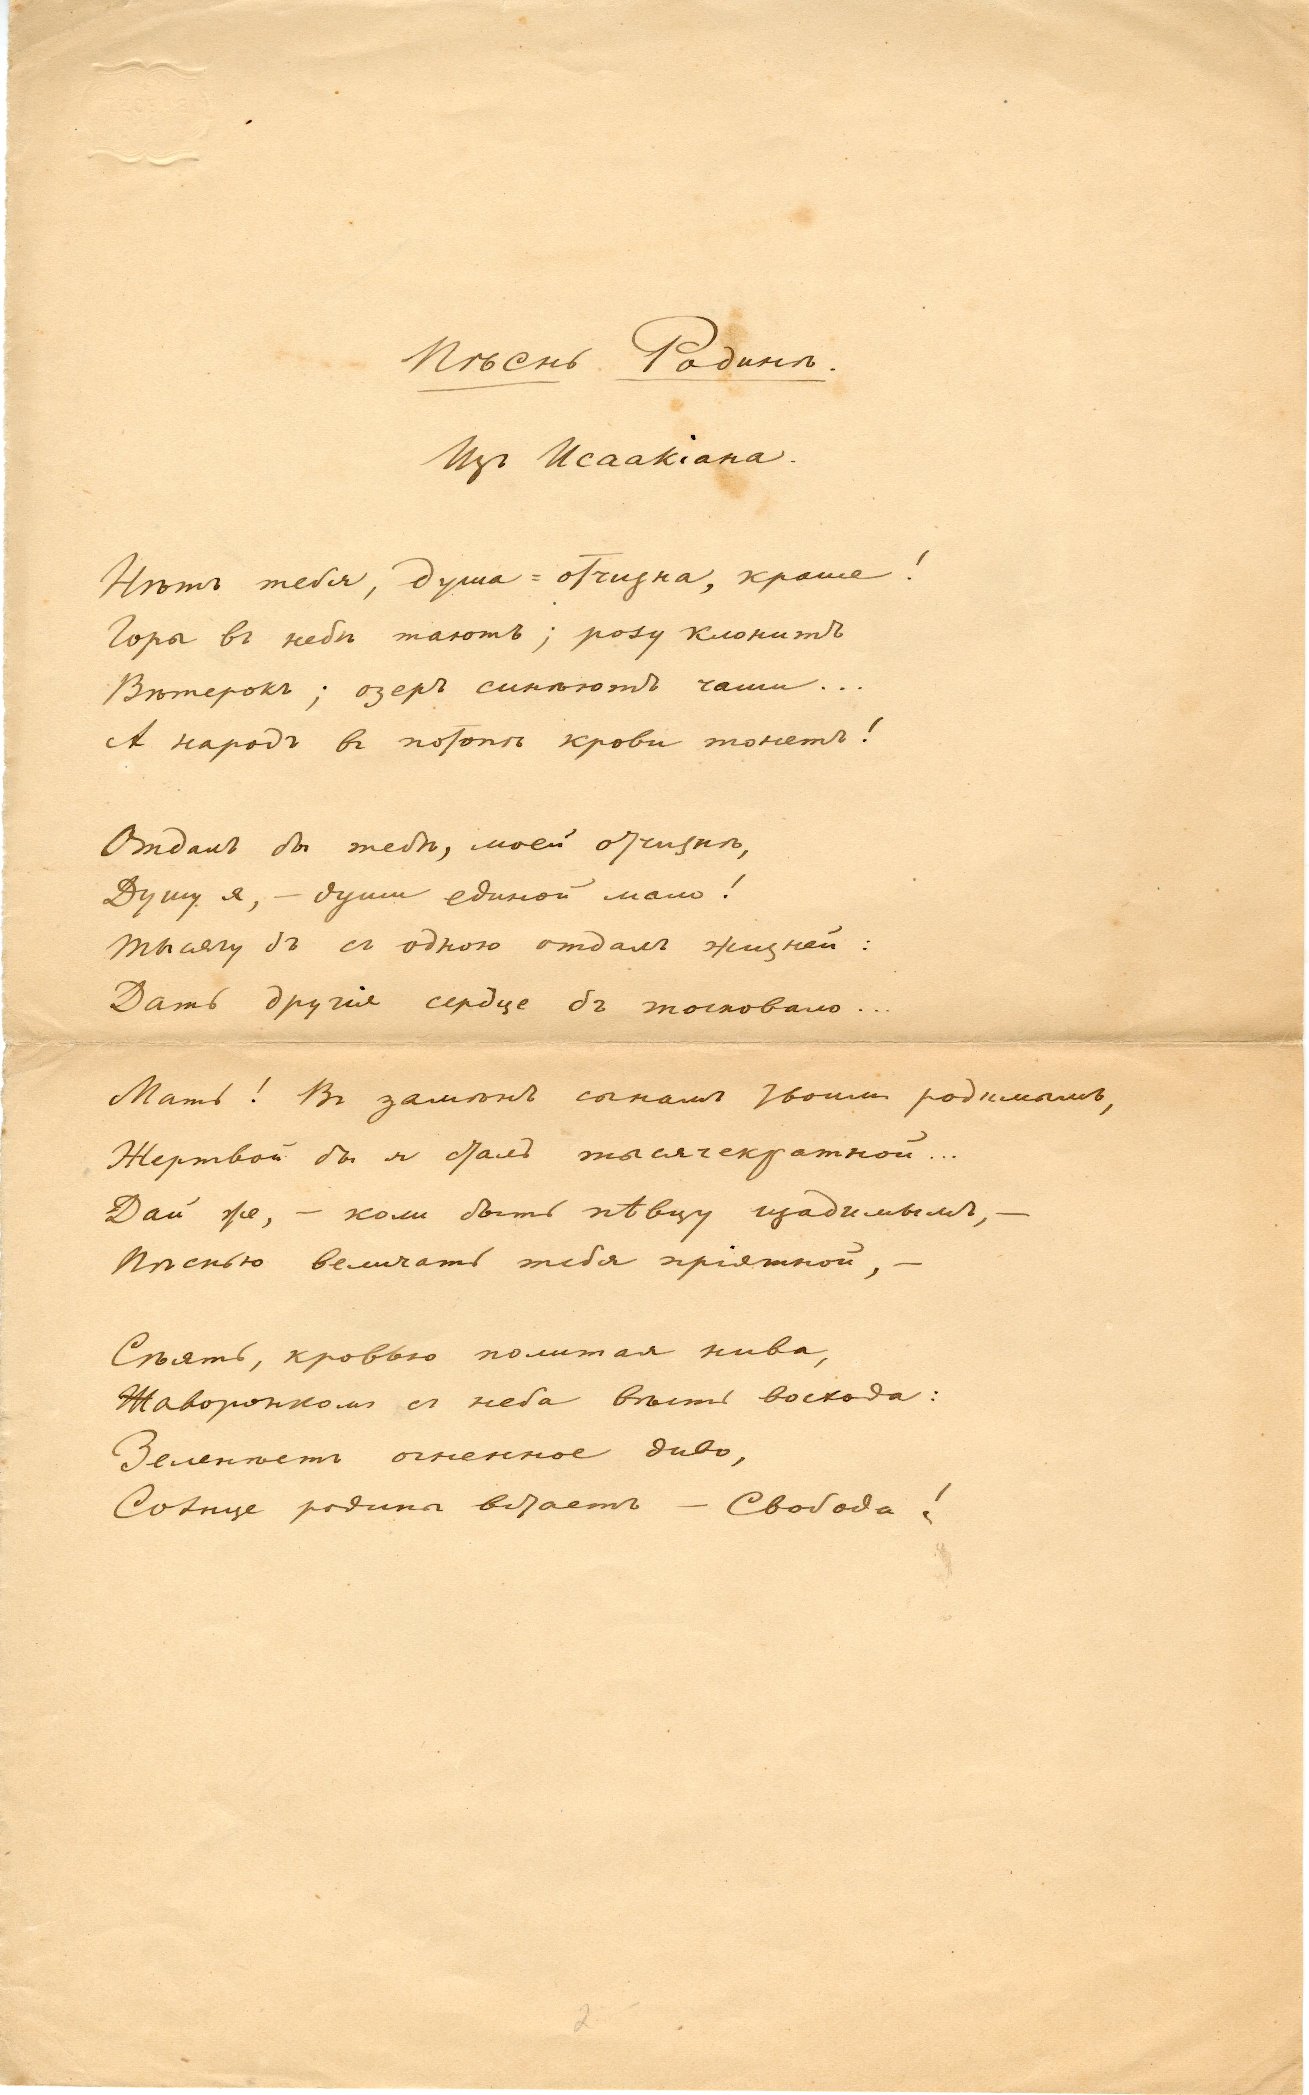 Пѣснь Родинѣ.
Изъ Исаакіана.
Нѣтъ тебя, душа=отчизна, краше!
Горы въ небѣ таютъ; розу клонитъ
Вѣтерокъ; озеръ синѣютъ чаши...
А народъ въ потопѣ крови тонетъ!
Отдалъ бы тебѣ, моей отчизнѣ,
Душу я, – души единой мало!
Тысячу бъ съ одною отдалъ жизней:
Дать другія сердце бъ тосковало...
Мать! Въ замѣнъ сынамъ твоимъ родимымъ,
Жертвой бы я сталъ тысячекратной...
Дай же, – коли быть пѣвцу щадимымъ, –
Пѣснью величать тебя пріятной, –
Спѣять, кровью политая нива,
Жаворонкомъ съ неба вѣсть восхода:
Зеленѣетъ огненное диво,
Солнце родины встаетъ – Свобода!
2